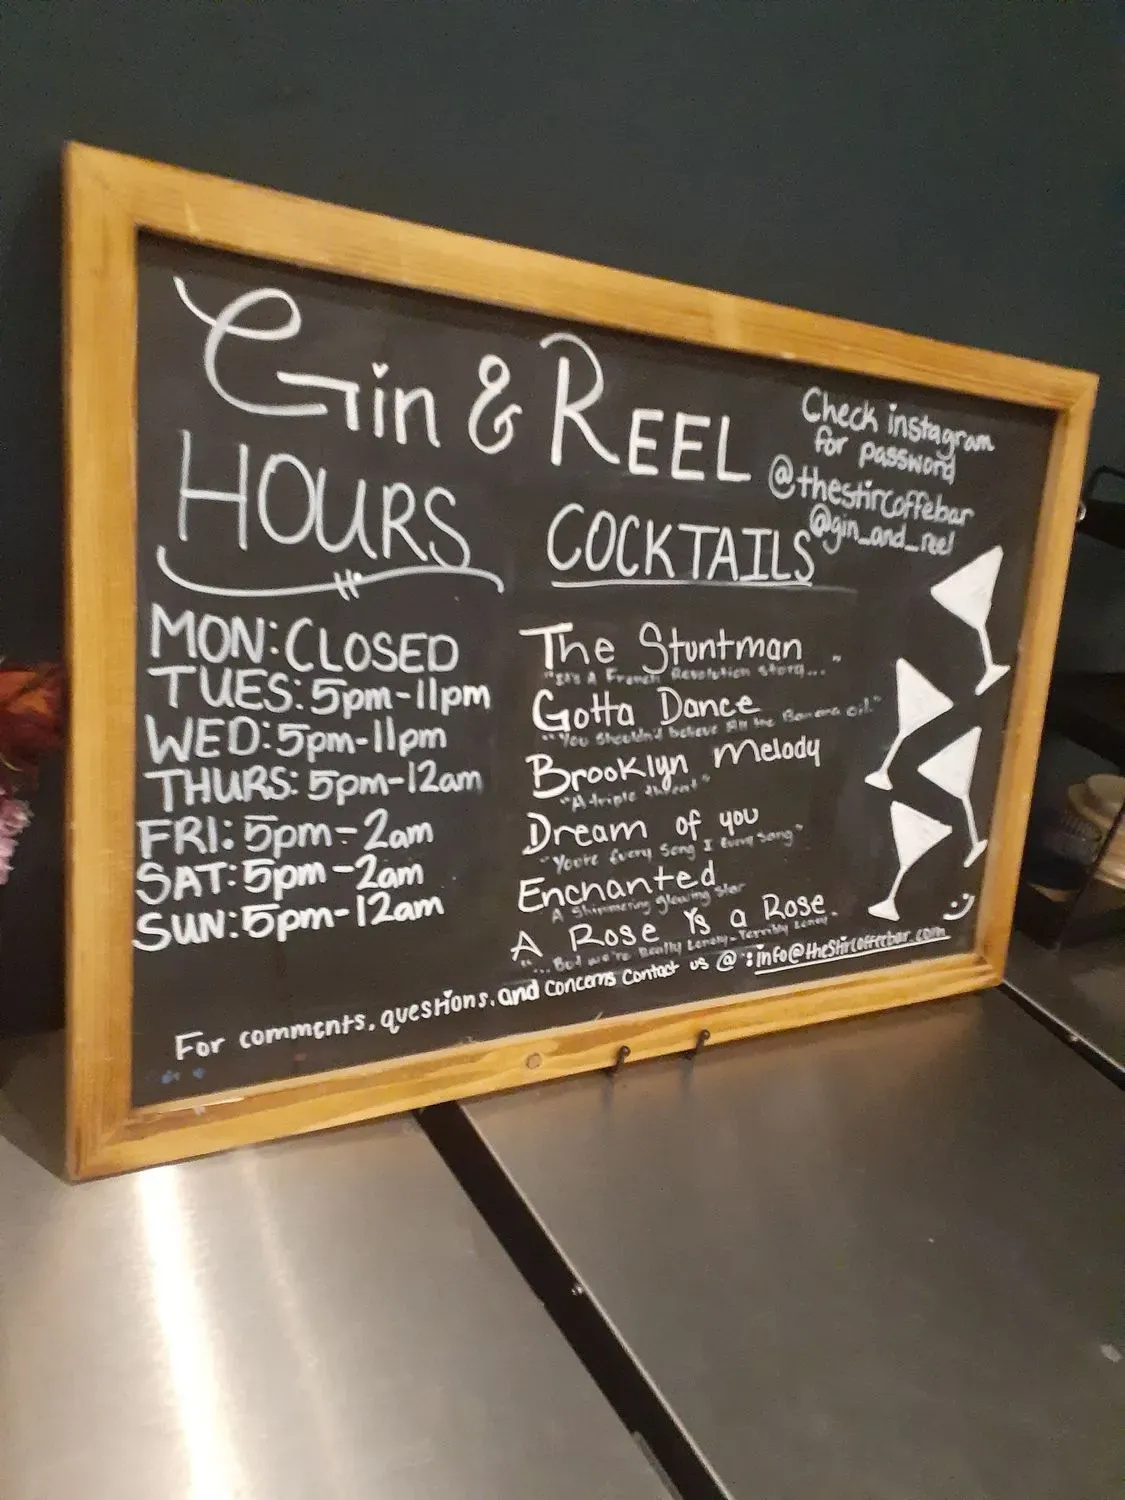 Gin & REEL
HOURS
MON: CLOSED
TUES: 5pm-11pm
WED: 5pm-11pm
THURS: 5pm-12am
FRI: 5pm-2am
SAT: 5pm-2am
SUN: 5pm-12am
Check instagram
for password
@thestircoffebar
@gin_and_reel
COCKTAILS
The Stuntman
"It's A French Revolution story..."
Gotta Dance
"You Shouldn't believe All the Banana Oil."
Brooklyn Melody
"A triple threat"
Dream of you
"You're Every Song I Every Sang"
Enchanted
A Shimmering glowing star
A Rose Ys a Rose.
"...But we're Really Lonely-Terribly Lonely
For comments, questions, and Concerns Contact us @: info@theStirCoffeebar.com